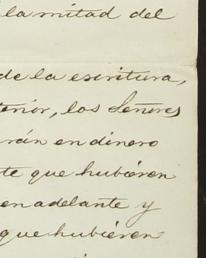 la mitad del
de la escritura,
terior, los Señores
rán en dinero
te que hubieren
en adelante y
que hubieren